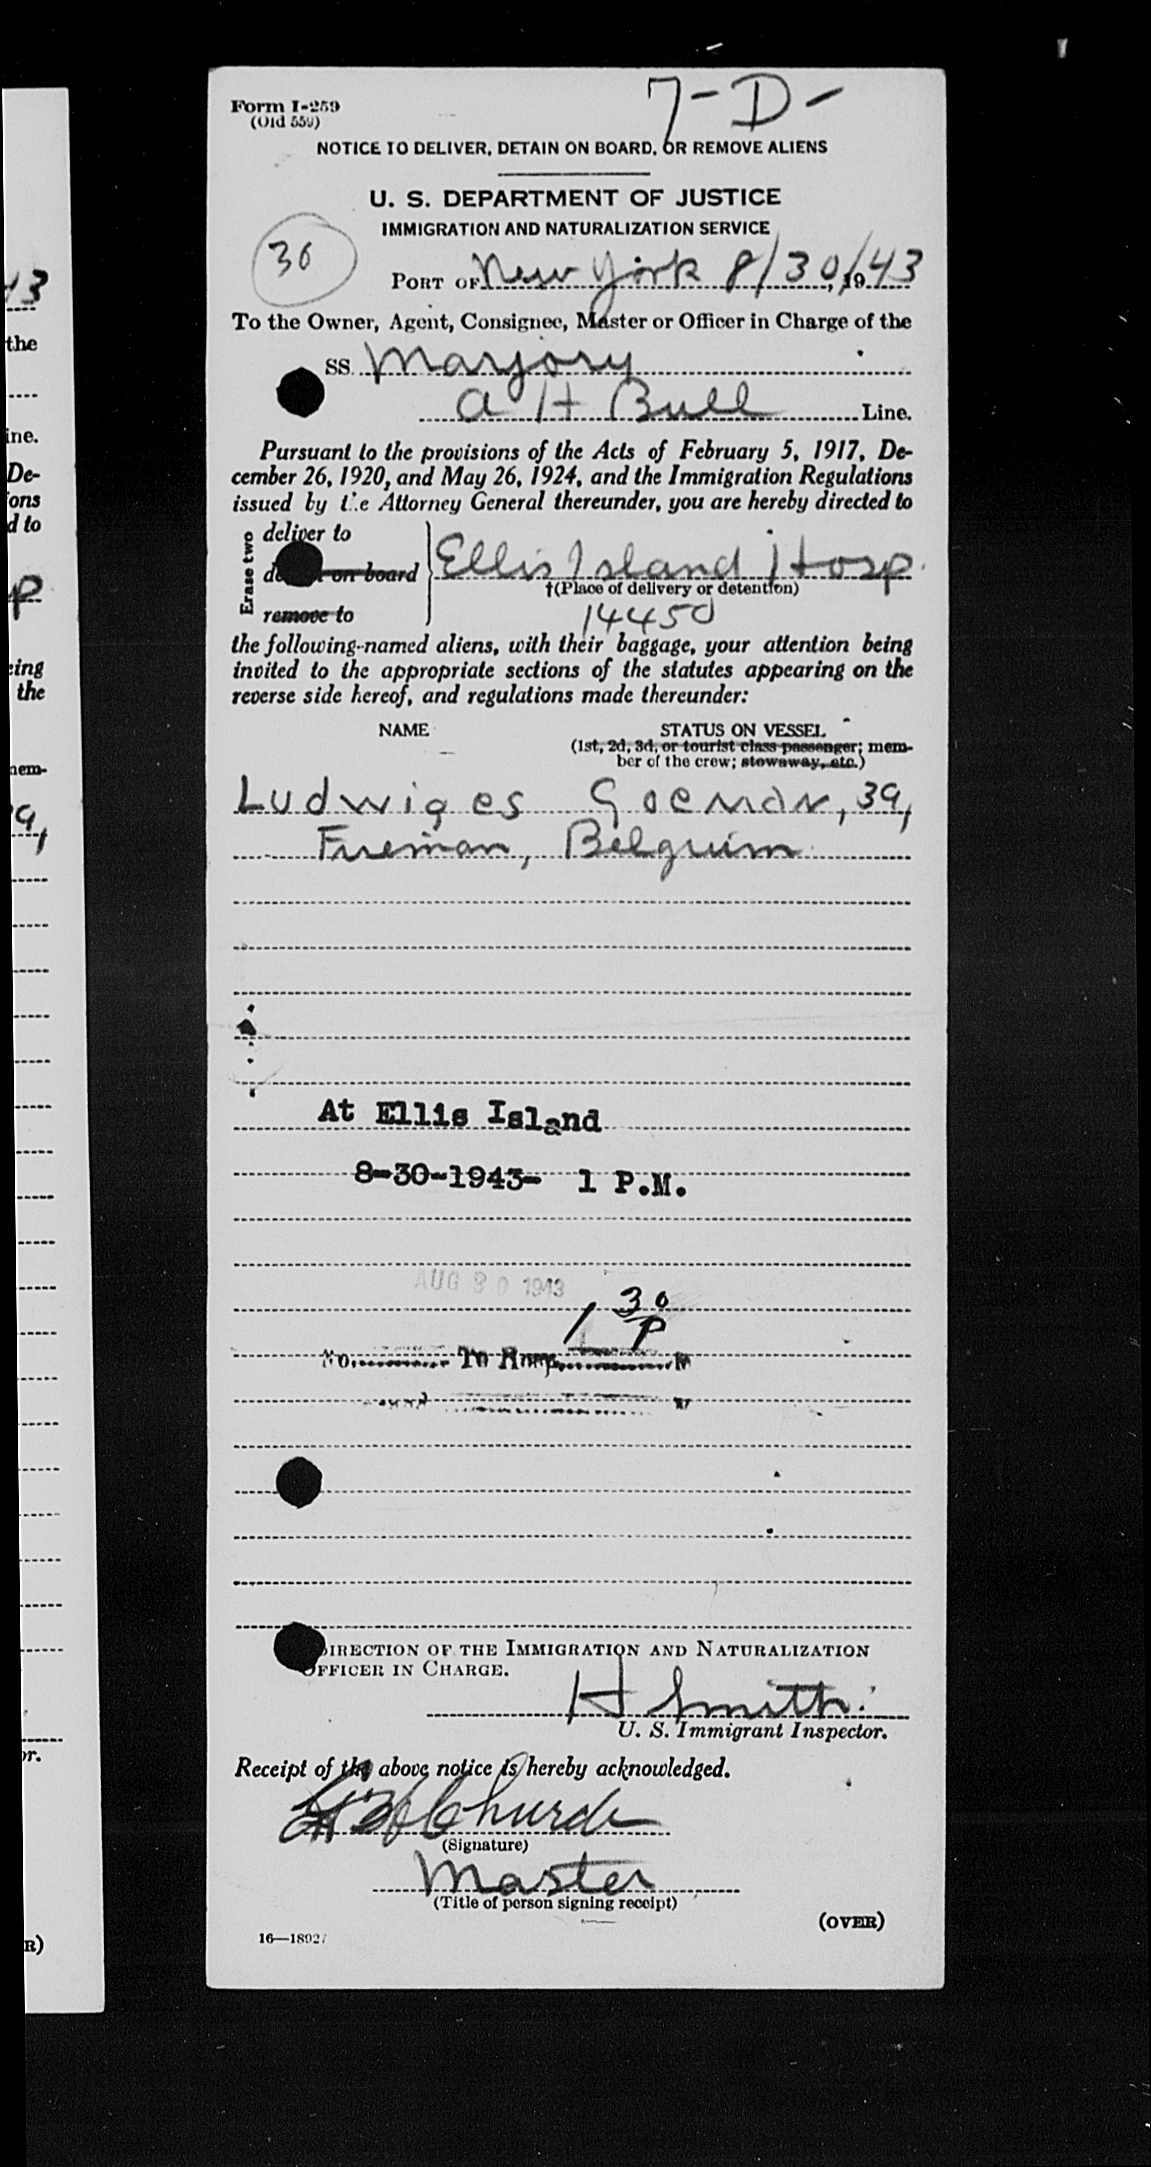 7-D-
Form I-259
(Old 559)
NOTICE TO DELIVER, DETAIN ON BOARD, OR REMOVE ALIENS
U. S. DEPARTMENT OF JUSTICE
IMMIGRATION AND NATURALIZATION SERVICE
30
PORT OF New York 8/30/, 1943
To the Owner, Agent, Consignee, Master or Officer in Charge of the
SS. Marjory
A H Bull Line.
Pursuant to the provisions of the Acts of February 5, 1917, De-
cember 26, 1920, and May 26, 1924, and the Immigration Regulations
issued by the Attorney General thereunder, you are hereby directed to
Erase two
deliver to
on board
remove to
Ellis Island Hosp.
†(Place of delivery or detention)
14450
the following-named aliens, with their baggage, your attention being
invited to the appropriate sections of the statutes appearing on the
reverse side hereof, and regulations made thereunder:
NAME STATUS ON VESSEL
(1st, 2d, 3d, or tourist class passenger; mem-
ber of the crew; stowaway, etc.)
Ludwiges 39,
Fireman, Belgium
At Ellis Island
8-30-1943- 1 P.M.
AUG 30 1943
1 30 P
No. To Hosp. M
DIRECTION OF THE IMMIGRATION AND NATURALIZATION
OFFICER IN CHARGE.
H Smith
U. S. Immigrant Inspector.
Receipt of the above notice is hereby acknowledged.
Church
(Signature)
Master
(Title of person signing receipt)
(OVER)
16—18927
43
the
ine.
De-
ons
d to
p
eing
the
mem-
9,
or.
R)